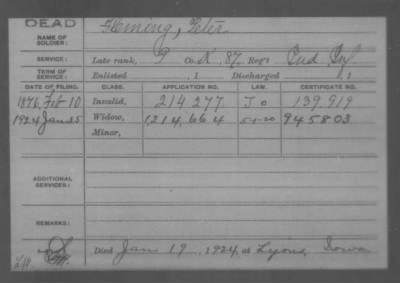 DEAD
NAME OF SOLDIER: Fleming, Peter
SERVICE: Late rank, P Co. K, 87 Reg't Ind Inf.
TERM OF SERVICE: Enlisted , 1 Discharged , 1
DATE OF FILING. CLASS. APPLICATION NO. LAW. CERTIFICATE NO.
1876, Feb 10 Invalid, 214 277 J O 139 919
1924 Jan 25 Widow, 1,214,664 5-1-20 945803
Minor,
ADDITIONAL SERVICES:
REMARKS:
Died Jan 19, 1924, at Lyons, Iowa